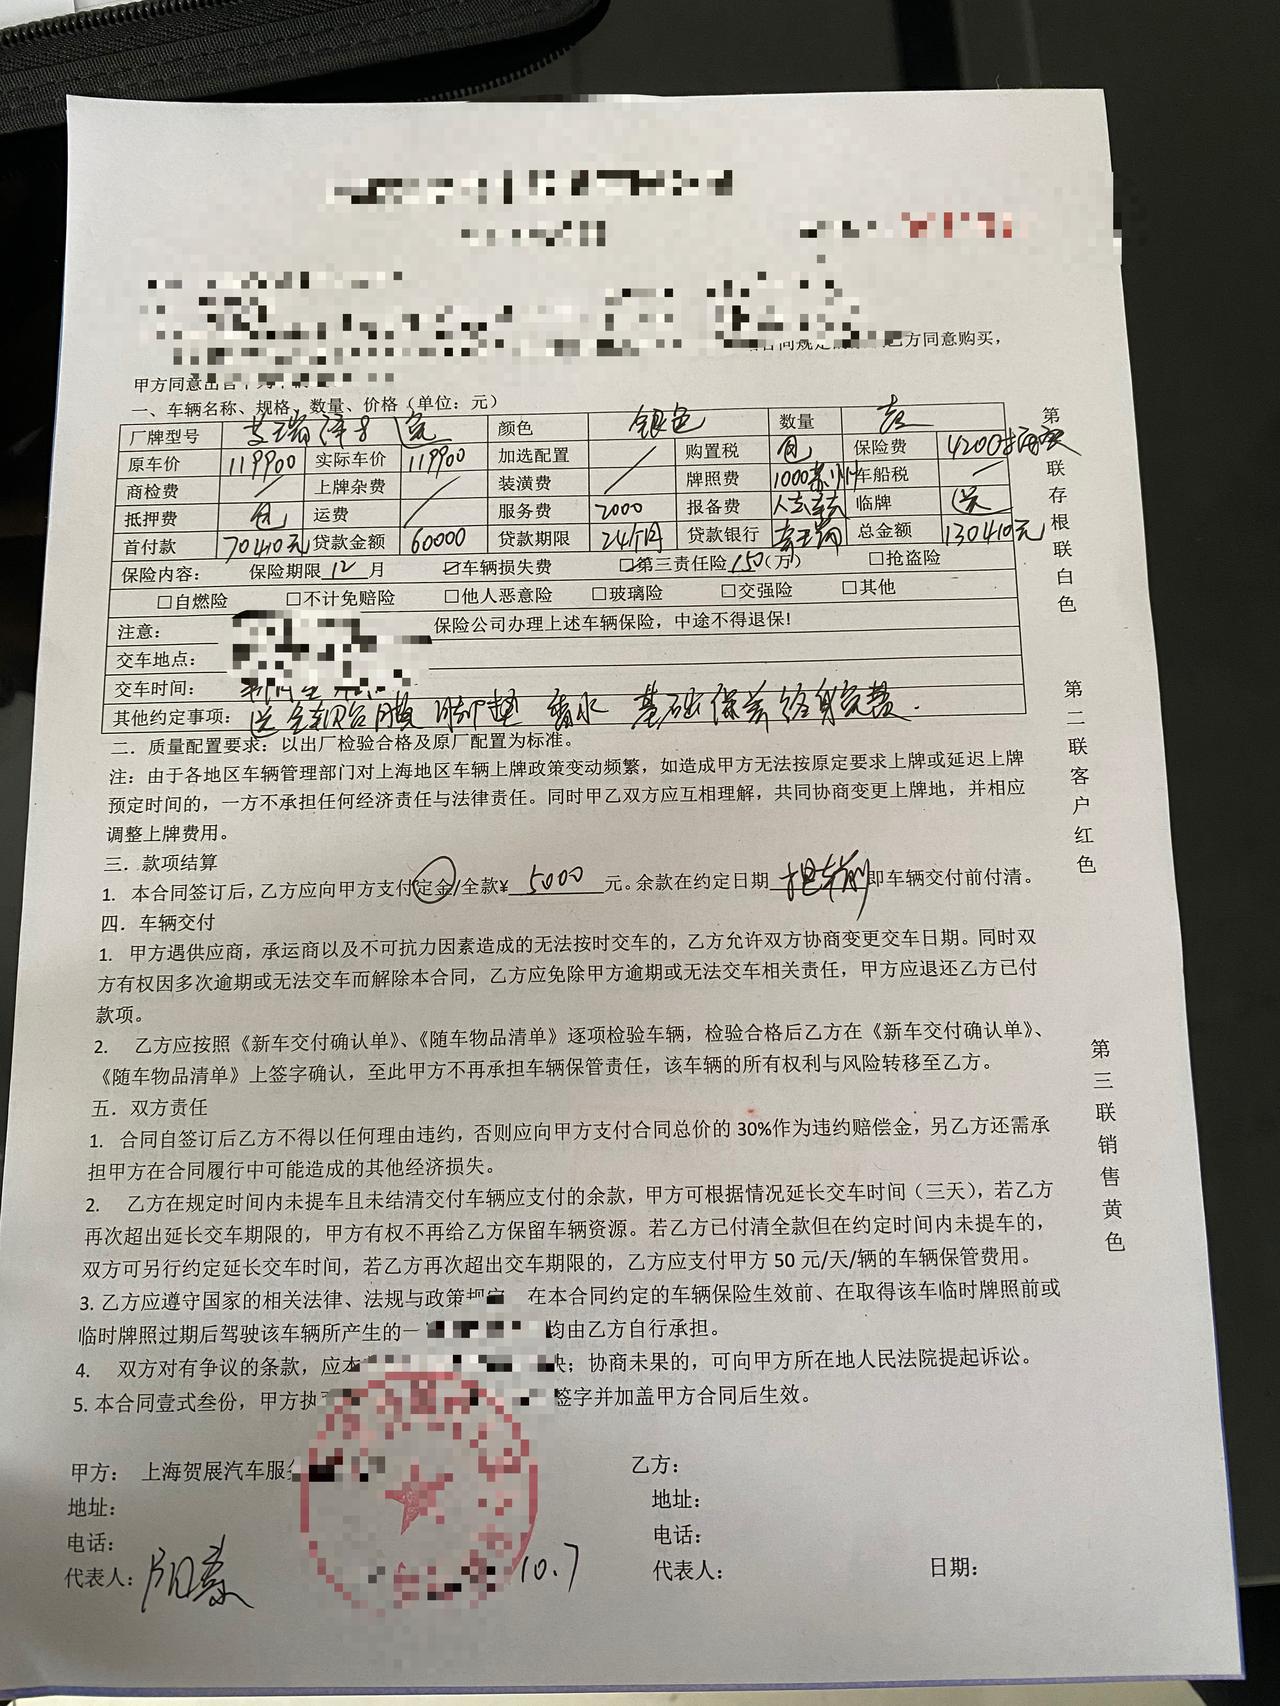 同意购买，
甲方同意出
一、车辆名称、规格、数量、价格（单位：元）
厂牌型号 艾瑞泽8 颜色 银色 数量 壹
原车价 119900 实际车价 119900 加选配置 / 购置税 包 保险费 4200
商检费 / 上牌杂费 / 装潢费 / 牌照费 1000苏州 车船税 /
抵押费 包 运费 / 服务费 2000 报备费 临牌 送
首付款 70410元 贷款金额 60000 贷款期限 24个月 贷款银行 奇瑞 总金额 130410元
保险内容： 保险期限 12 月 ☑车辆损失费 ☑第三责任险 150（万） □抢盗险
□自燃险 □不计免赔险 □他人恶意险 □玻璃险 □交强险 □其他
注意： 保险公司办理上述车辆保险，中途不得退保!
交车地点：
交车时间：
其他约定事项： 送 脚垫 香水 基础保养终身免费.
二．质量配置要求：以出厂检验合格及原厂配置为标准。
注：由于各地区车辆管理部门对上海地区车辆上牌政策变动频繁，如造成甲方无法按原定要求上牌或延迟上牌
预定时间的，一方不承担任何经济责任与法律责任。同时甲乙双方应互相理解，共同协商变更上牌地，并相应
调整上牌费用。
三．款项结算
1. 本合同签订后，乙方应向甲方支付定金/全款¥ 5000 元。余款在约定日期 提车前 即车辆交付前付清。
四．车辆交付
1. 甲方遇供应商，承运商以及不可抗力因素造成的无法按时交车的，乙方允许双方协商变更交车日期。同时双
方有权因多次逾期或无法交车而解除本合同，乙方应免除甲方逾期或无法交车相关责任，甲方应退还乙方已付
款项。
2. 乙方应按照《新车交付确认单》、《随车物品清单》逐项检验车辆，检验合格后乙方在《新车交付确认单》、
《随车物品清单》上签字确认，至此甲方不再承担车辆保管责任，该车辆的所有权利与风险转移至乙方。
五．双方责任
1. 合同自签订后乙方不得以任何理由违约，否则应向甲方支付合同总价的 30%作为违约赔偿金，另乙方还需承
担甲方在合同履行中可能造成的其他经济损失。
2. 乙方在规定时间内未提车且未结清交付车辆应支付的余款，甲方可根据情况延长交车时间（三天），若乙方
再次超出延长交车期限的，甲方有权不再给乙方保留车辆资源。若乙方已付清全款但在约定时间内未提车的，
双方可另行约定延长交车时间，若乙方再次超出交车期限的，乙方应支付甲方 50 元/天/辆的车辆保管费用。
3. 乙方应遵守国家的相关法律、法规与政策规定 在本合同约定的车辆保险生效前、在取得该车临时牌照前或
临时牌照过期后驾驶该车辆所产生的一 均由乙方自行承担。
4. 双方对有争议的条款，应本 决；协商未果的，可向甲方所在地人民法院提起诉讼。
5. 本合同壹式叁份，甲方执 签字并加盖甲方合同后生效。
甲方： 上海贺展汽车服 乙方：
地址： 地址：
电话： 电话：
代表人： 10.7 代表人： 日期：
第一联存根联白色
第二联客户红色
第三联销售黄色